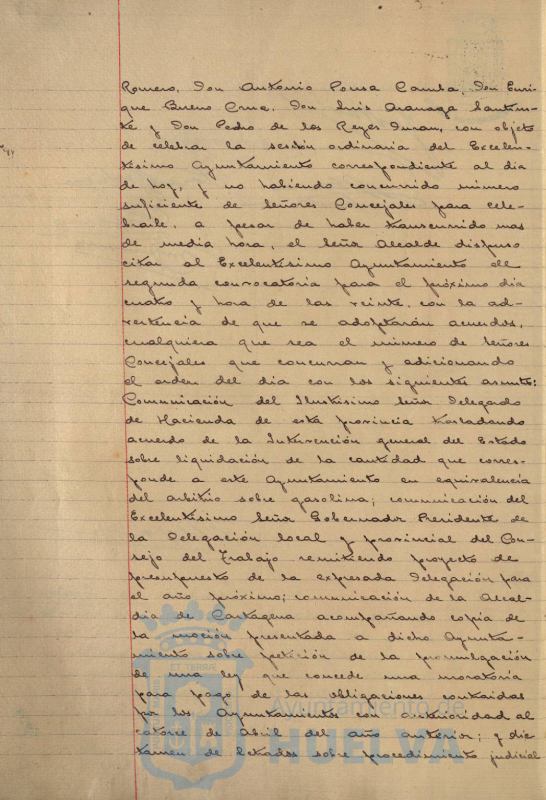 Romero, Don Antonio Pousa Camba, Don Enri-
que Bueno Cruz, Don Luis Aranaga Santuis-
te y Don Pedro de los Reyes Duran, con objeto
de celebrar la sesión ordinaria del Excelen-
tísimo Ayuntamiento correspondiente al dia
de hoy, y no habiendo concurrido número
suficiente de Señores Concejales para cele-
brarla, a pesar de haber transcurrido mas
de media hora, el Señor Alcalde dispuso
citar al Excelentísimo Ayuntamiento de
segunda convocatoria para el próximo dia
cuatro y hora de las veinte, con la ad-
vertencia de que se adoptarán acuerdos,
cualquiera que sea el número de Señores
Concejales que concurran y adicionando
el orden del dia con los siguientes asuntos:
Comunicación del Ilustrísimo Señor Delegado
de Hacienda de esta provincia trasladando
acuerdo de la Intervención general del Estado
sobre liquidación de la cantidad que corres-
ponde a este Ayuntamiento en equivalencia
del arbitrio sobre gasolina; comunicación del
Excelentísimo Señor Gobernador Presidente de
la Delegación local y provincial del Con-
sejo del Trabajo remitiendo proyecto de
presupuesto de la expresada Delegación para
el año próximo; comunicación de la Alcal-
dia de Cartagena acompañando copia de
la moción presentada a dicho Ayunta-
miento sobre petición de la promulgación
de una ley que concede una moratoria
para pago de las obligaciones contraidas
por los Ayuntamientos con anterioridad al
catorce de Abril del año anterior; y dic-
tamen de letrados sobre procedimiento judicial
ET TERRÆ
Ayuntamiento de
HUELVA